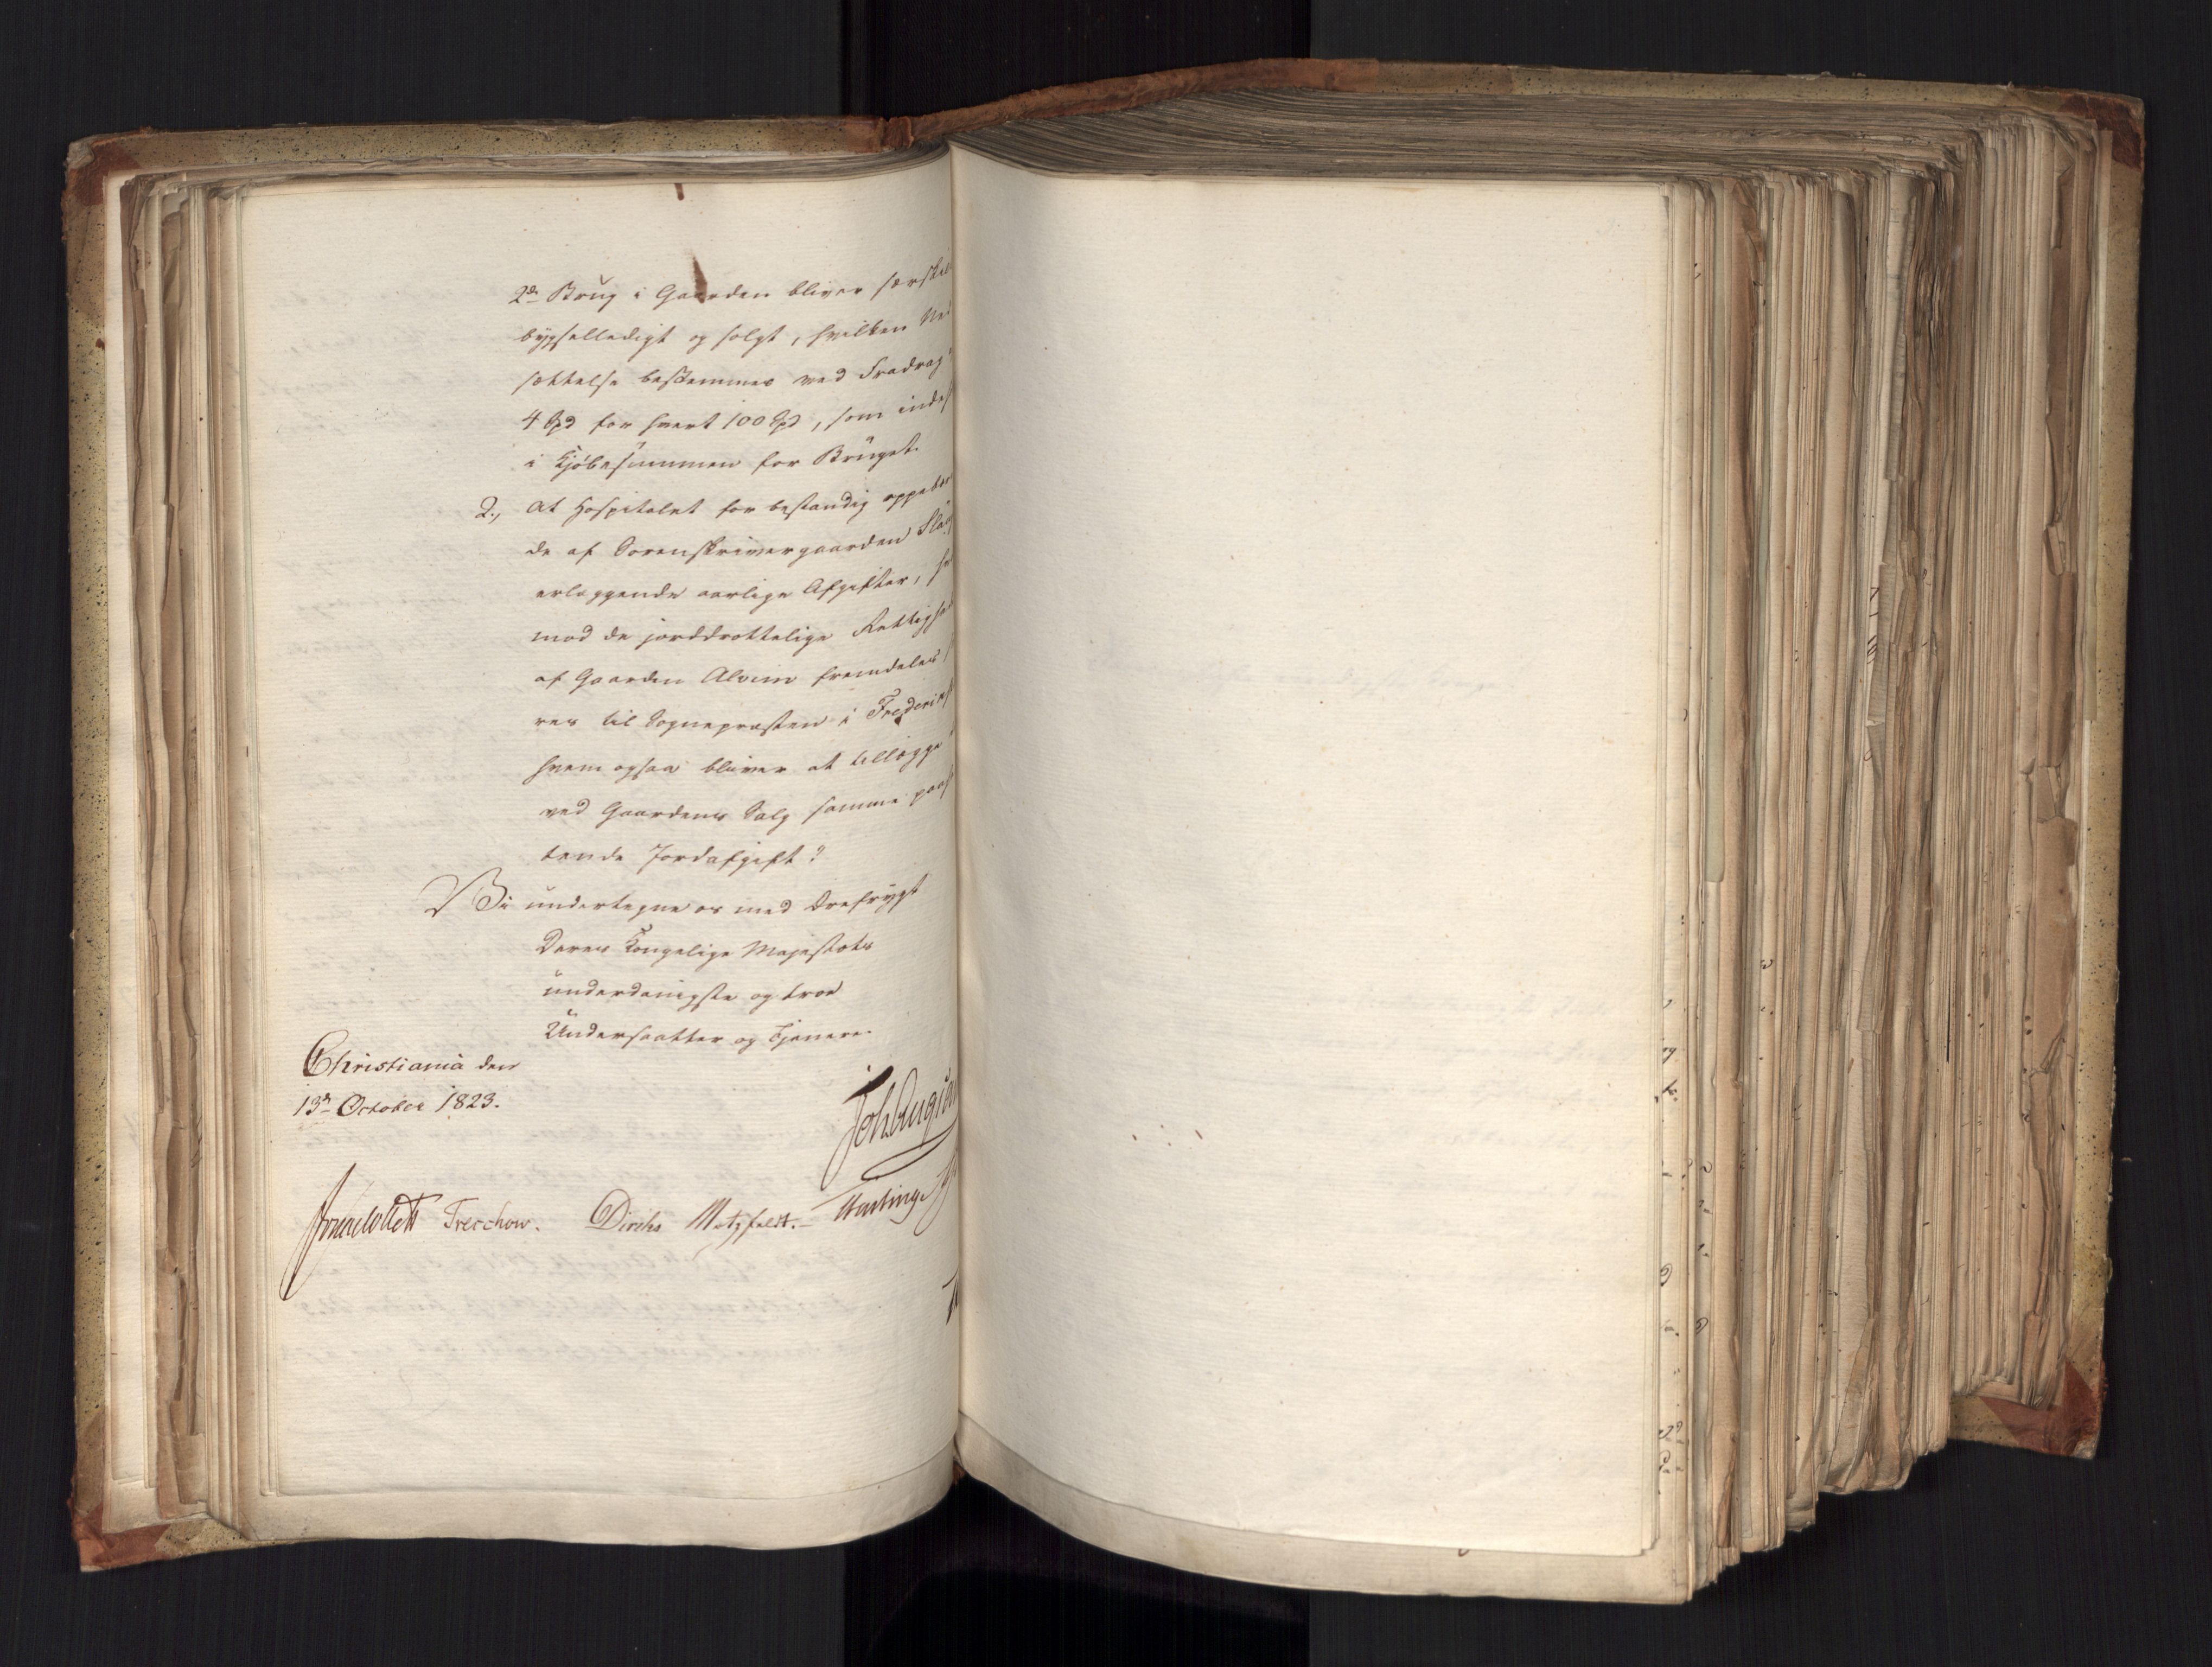 2de Brug i Gaarden bliver særskil
bygselledigt og solgt, hvilken Ned
sættelse bestemmes ved Fradrag
4 Spd for hvert 100 Spd, som indes
i Kjöbesummen for Bruget.
2., At Hospitalet for bestandig oppebær
de af Sorenskrivergaarden
erlæggende aarlige Afgifter,
mod de jorddrottelige Rettighe
af Gaarden Alvim fremdeles
res til Sognepræsten i Frederiks
hvem ogsaa bliver at tillægge
ved Gaardens Salg samme paah
tende Jordafgift?
Vi undertegne os med Ærefrygt
Deres Kongelige Majestæts
underdanigste og troe
Undersaatter og Tjenere.
Christiania den
13de October 1823.
Joh. Aug: Sa
Sommerhielm Treschow. Diriks Motzfeldt.